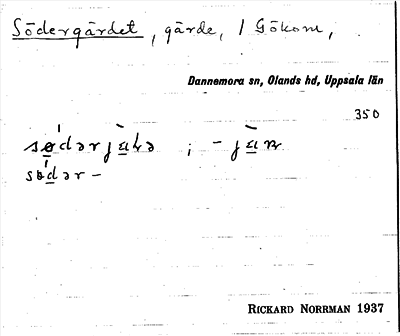 Södergärdet, gärde, / Gökom,
Dannemora sn, Olands hd, Uppsala län
350
södər –
RICKARD NORRMAN 1937